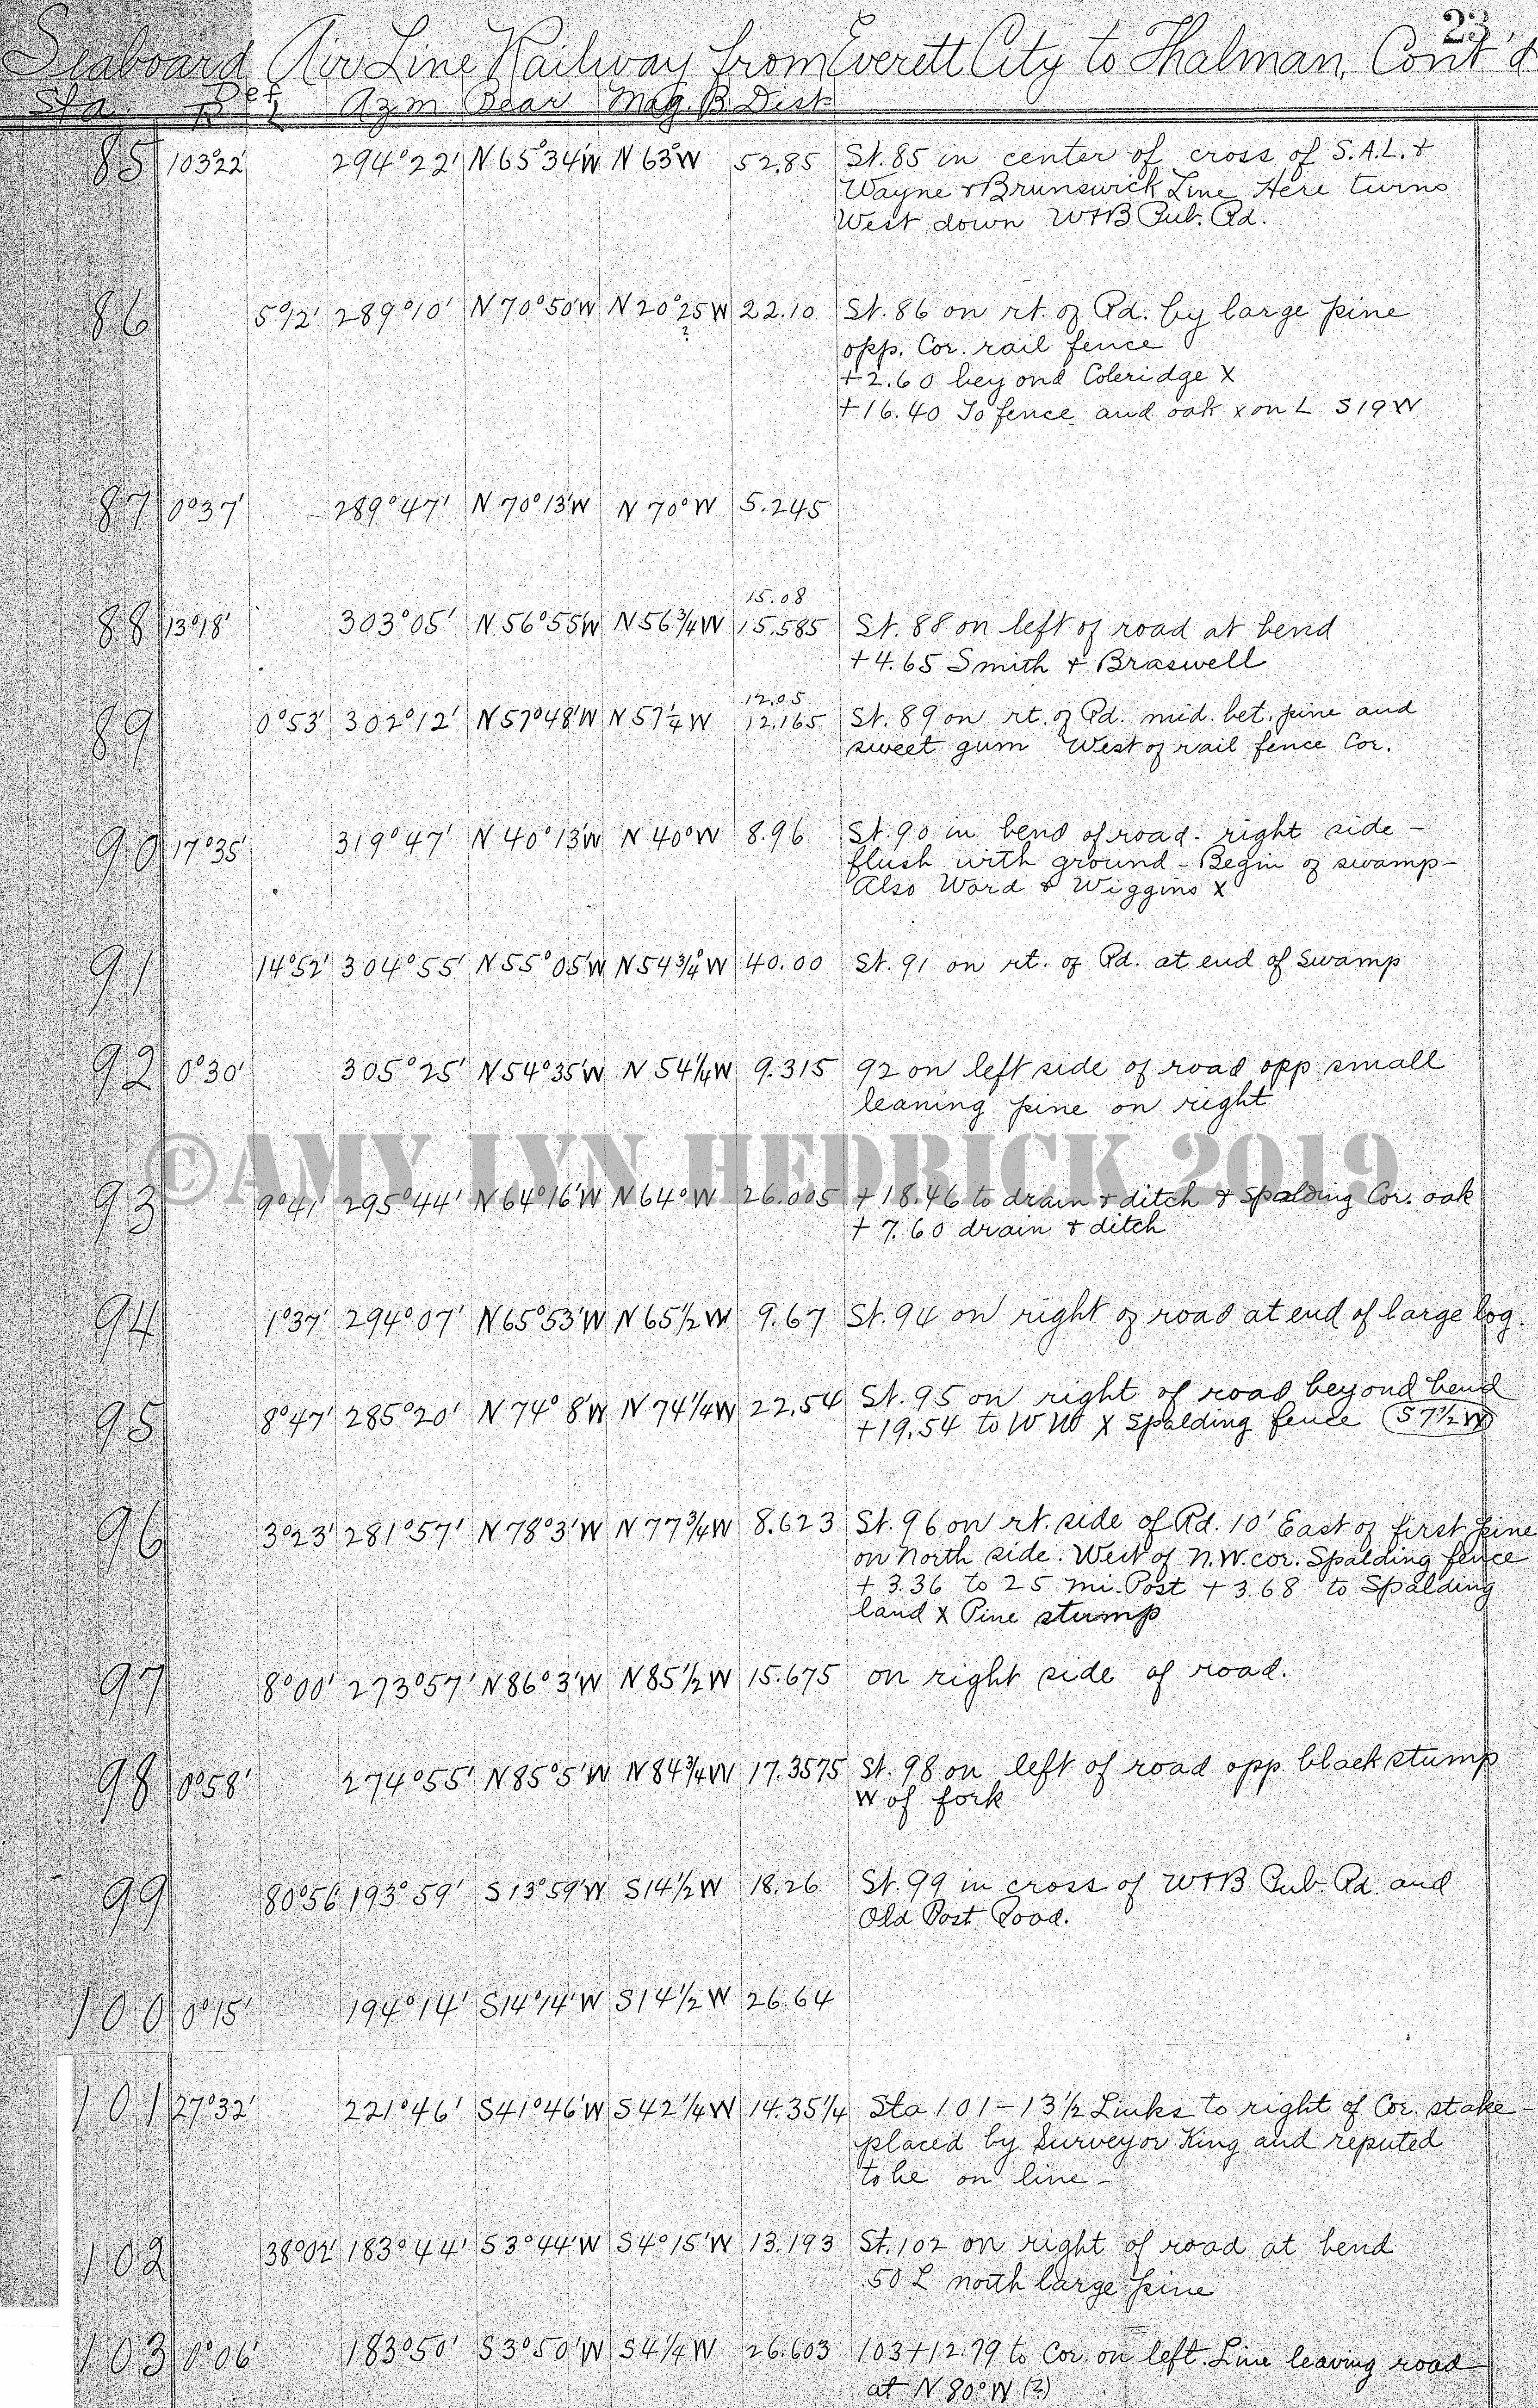 23
Seaboard Air Line Railway from Everett City to Thalman, Cont'd
Sta. Def R L Azm Bear Mag. B. Dist
85 103°22' 294°22' N65°34'W N 63°W 52.85 St. 85 in center of cross of S.A.L. &
Wayne & Brunswick Line Here turns
West down W&B Pub. Rd.
86 5°12' 289°10' N70°50'W N20°25W 22.10 St. 86 on rt. of Rd. by large pine
?
opp. Cor. rail fence
+2.60 beyond Coleridge X
+16.40 To fence and oak x on L S19W
87 0°37' 289°47' N 70°13'W N 70°W 5.245
15.08
88 13°18' 303°05' N.56°55'W N56 3/4 W 15.585 St. 88 on left of road at bend
+4.65 Smith & Braswell
12.05
89 0°53' 302°12' N57°48'W N 57 1/4 W 12.165 St. 89 on rt. of Rd. mid. bet. pine and
sweet gum West of rail fence Cor.
90 17°35' 319°47' N 40°13'W N 40°W 8.96 St. 90 in bend of road - right side -
flush with ground - Begin of swamp -
Also Ward & Wiggins X
91 14°52' 304°55' N55°05'W N54 3/4° W 40.00 St. 91 on rt. of Rd. at end of Swamp
92 0°30' 305°25' N54°35'W N 54 1/4 W 9.315 92 on left side of road opp small
leaning pine on right
©AMY LYN HEDRICK 2019
93 9°41' 295°44' N64°16'W N64°W 26.005 +18.46 to drain & ditch & Spalding Cor. oak
+ 7.60 drain & ditch
94 1°37' 294°07' N65°53'W N 65 1/2 W 9.67 St. 94 on right of road at end of large log.
95 8°47' 285°20' N 74°8'W N 74 1/4 W 22.54 St. 95 on right of road beyond bend
+19.54 to W X Spalding fence S7 1/2 W
96 3°23' 281°57' N 78°3'W N 77 3/4 W 8.623 St. 96 on rt. side of Rd. 10' East of first pine
on North side. West of N.W. cor. Spalding fence
+ 3.36 to 25 mi. Post + 3.68 to Spalding
land X Pine stump
97 8°00' 273°57' N86°3'W N85 1/2 W 15.675 on right side of road.
98 0°58' 274°55' N85°5'W N84 3/4 W 17.3575 St. 98 on left of road opp. black stump
W of fork
99 80°56' 193°59' S13°59'W S14 1/2 W 18.26 St. 99 in cross of W&B Pub. Rd. and
Old Post Road.
100 0°15' 194°14' S14°14'W S14 1/2 W 26.64
101 27°32' 221°46' S41°46'W S42 1/4 W 14.35 1/4 Sta 101 - 13 1/2 Links to right of Cor. stake -
placed by Surveyor King and reputed
to be on line -
102 38°02' 183°44' S3°44'W S4°15'W 13.193 St. 102 on right of road at bend
.50 L north large pine
103 0°06' 183°50' S3°50'W S4 1/4 W 26.603 103+12.79 to Cor. on left. Line leaving road
at N 80°W (?)